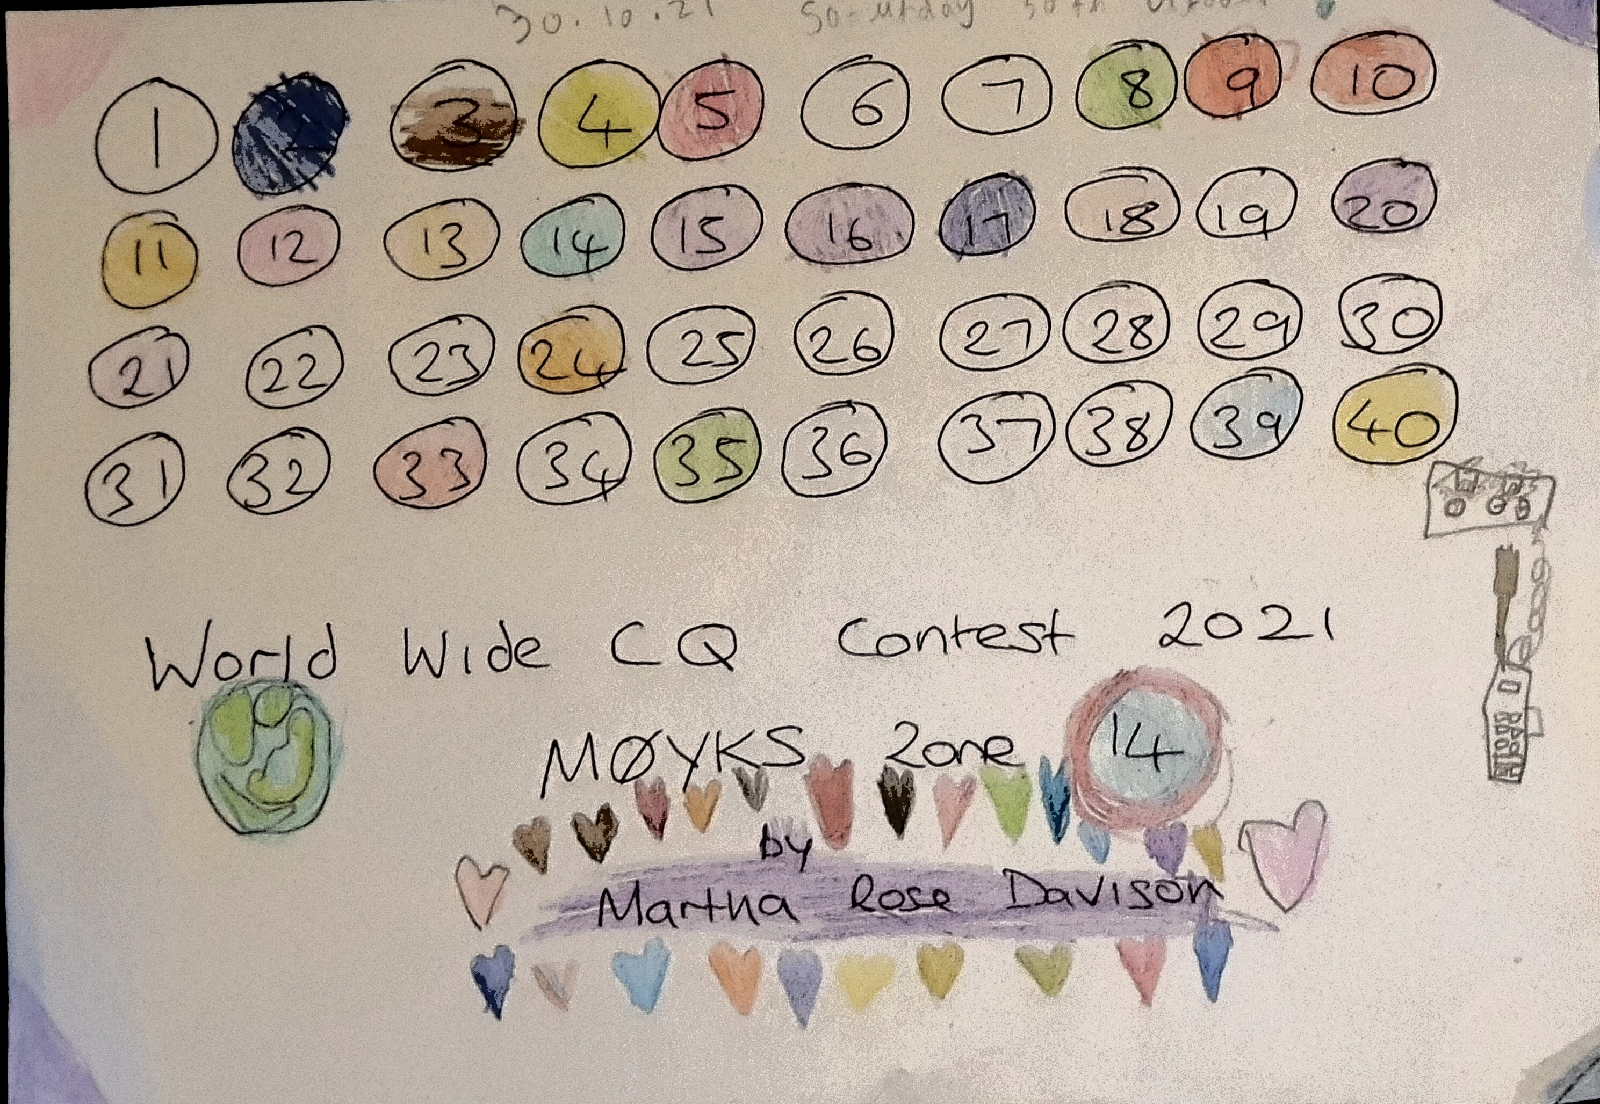 30.10.21 Saturday 30th October
1 2 3 4 5 6 7 8 9 10
11 12 13 14 15 16 17 18 19 20
21 22 23 24 25 26 27 28 29 30
31 32 33 34 35 36 37 38 39 40
World Wide CQ Contest 2021
MØYKS Zone 14
by
Martha Rose Davison